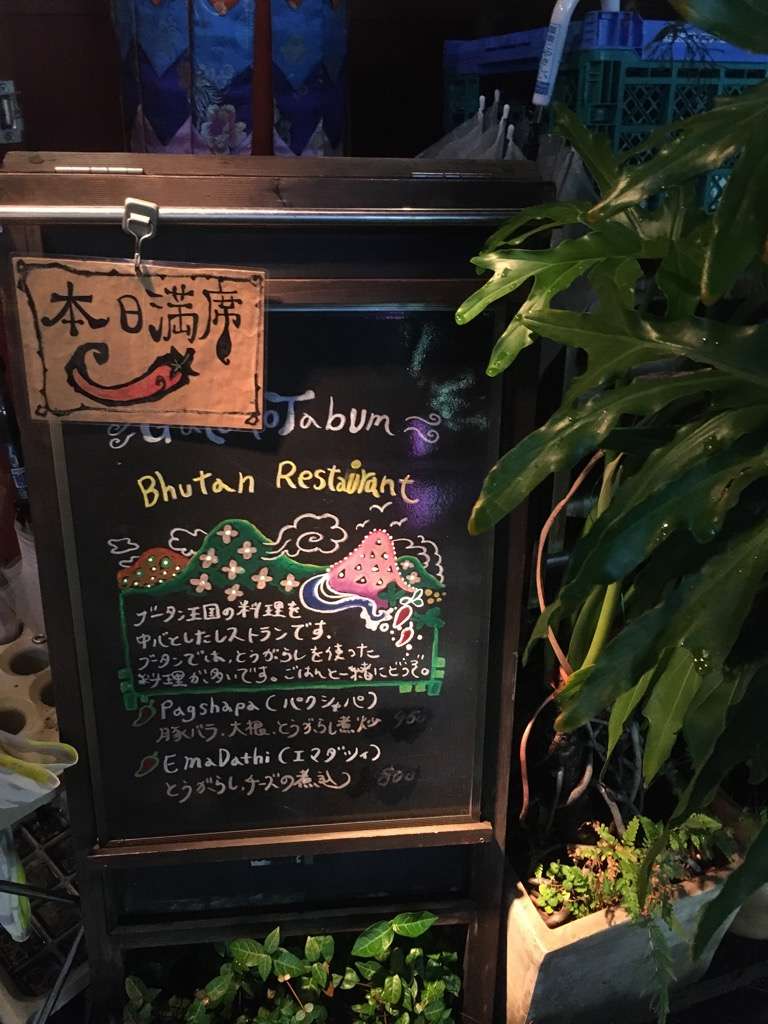 本日満席
Tabum
Bhutan Restaurant
ブータン王国の料理を
中心としたレストランです。
ブータンでは、とうがらしを使った
料理が多いです。ごはんと一緒にどうぞ。
Pagshapa(パクシャパ)
豚バラ、大根、とうがらし煮炒
EmaDathi(エマダツィ)
とうがらし、チーズの煮込